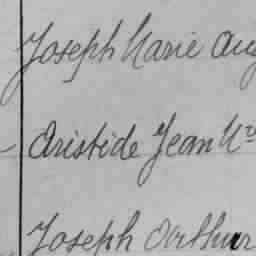 Joseph Marie Aug
Aristide Jean M
Joseph Arthur